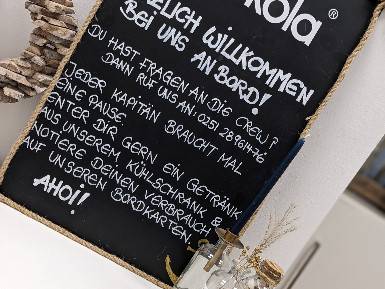 kola®
ZLICH WILLKOMMEN
BEI UNS AN BORD!
DU HAST FRAGEN AN DIE CREW?
DANN RUF UNS AN: 0251 28961476
JEDER KAPITÄN BRAUCHT MAL
EINE PAUSE
ENTER DIR GERN EIN GETRÄNK
AUS UNSEREM KÜHLSCHRANK &
NOTIERE DEINEN VERBRAUCH
AUF UNSEREN BORDKARTEN.
AHOI!